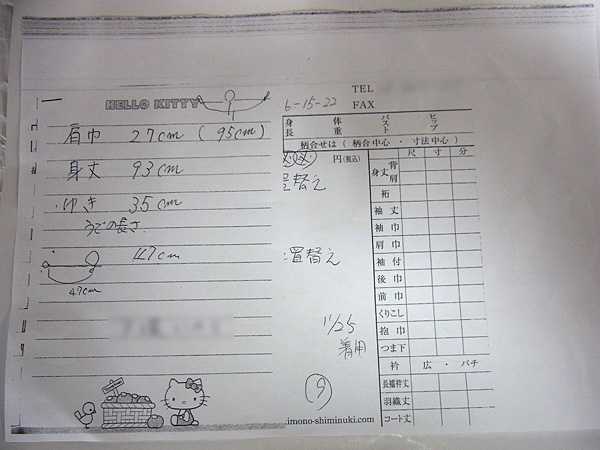 HELLO KITTY
肩巾 27cm (95cm)
身丈 93cm
ゆき 35cm
うでの長さ
47cm
47cm
TEL
6-15-22 FAX
身長 体重 バスト ヒップ
柄合せは(柄合中心・寸法中心)
円(税込)
替え
置替え
11/25
着用
9
imono-shiminuki.com
尺 寸 分
身丈 背 肩
裄
袖丈
袖巾
肩巾
袖付
後巾
前巾
くりこし
抱巾
つま下
衿 広・バチ
長襦袢丈
羽織丈
コート丈